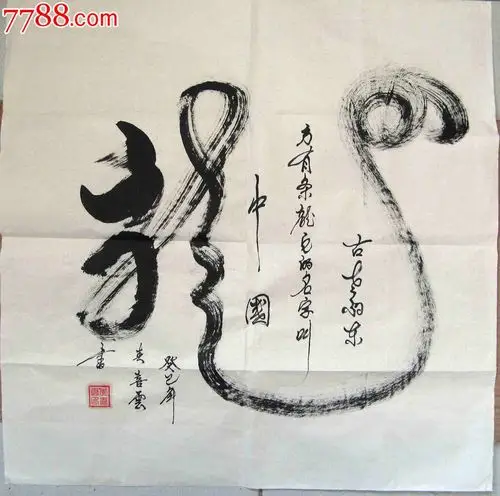 7788.com
龍
古老的东
方有条龍它的名字叫
中國
癸巳年
喜雲
書